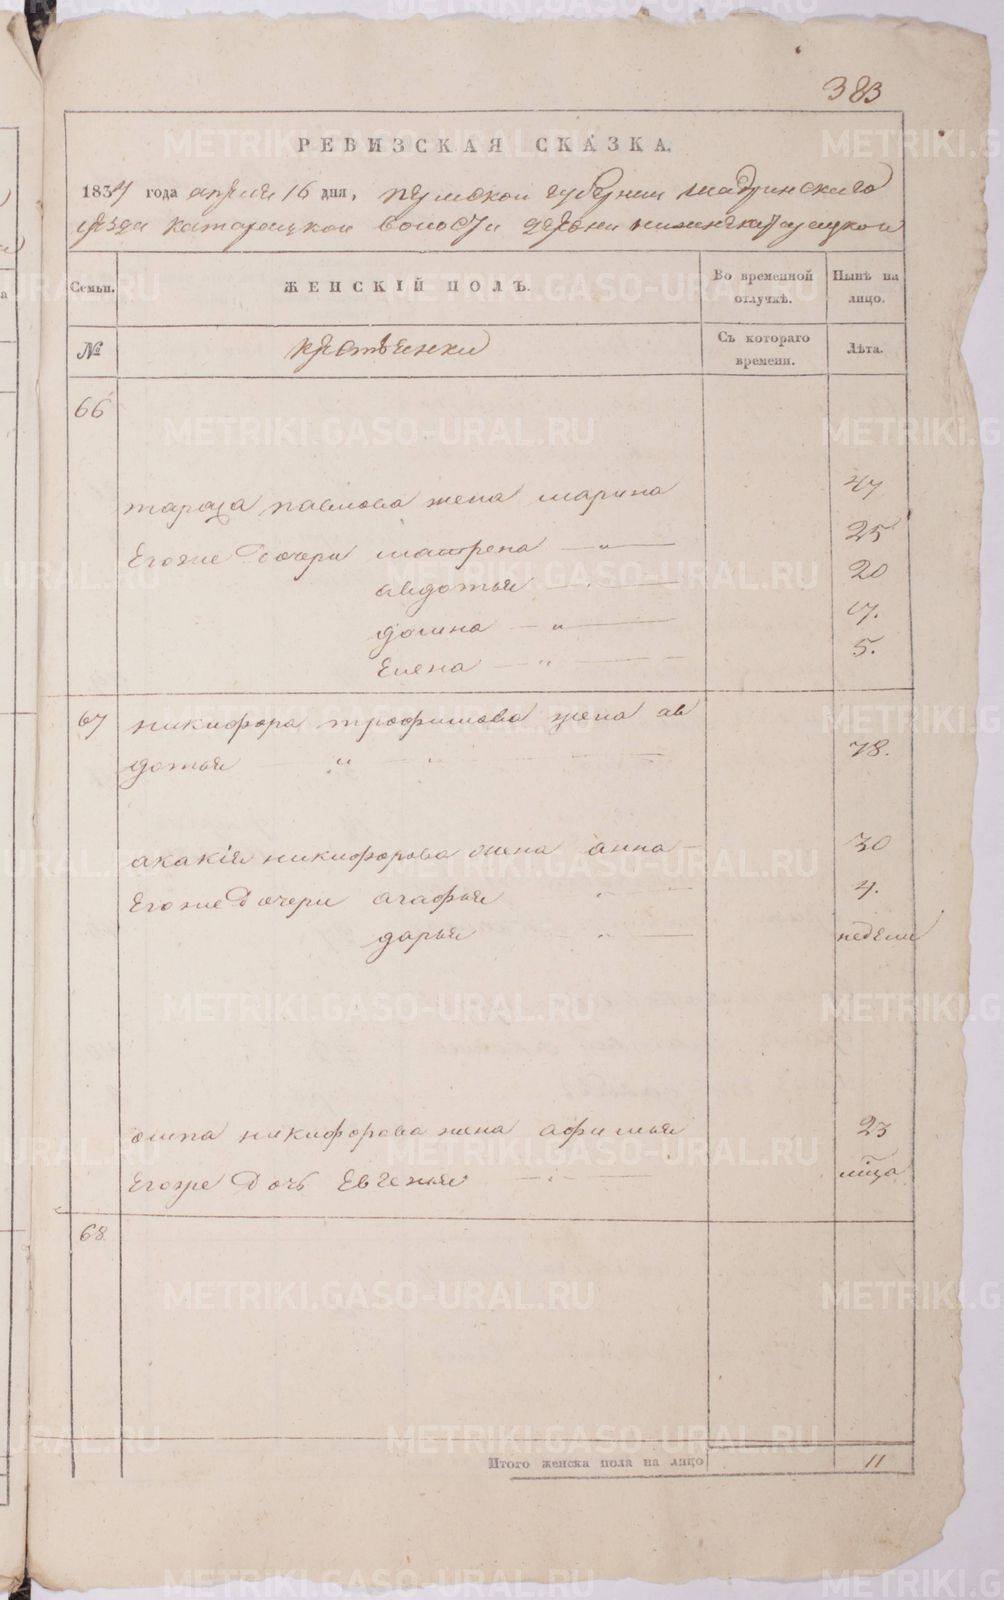 383
РЕВИЗСКАЯ СКАЗКА.
1834 года апреля 16 дня, пермской губернии шадринскаго
уезда катарацкой волости деревни нижнекатарацкой
Семьи. ЖЕНСКІЙ ПОЛЪ. Во временной отлучкѣ. Нынѣ на лицо.
№ крестьянки Съ котораго времени. Лѣта.
66
тараса павлова жена марина 47
Егоже дочери матрена — „ — 25
авдотья 20
домна — „ — 17.
Елена — „ — 5.
67 никифора трофимова жена ав
дотья „ „ 78.
акакія никифорова жена анна 30
Егоже дочери агафья „ 4.
дарья „ недели
осипа никифорова жена афимья 23
Егоже дочь Евгенья м͠ца
68
Итого женска пола на лицо 11
METRIKI.GASO-URAL.RU